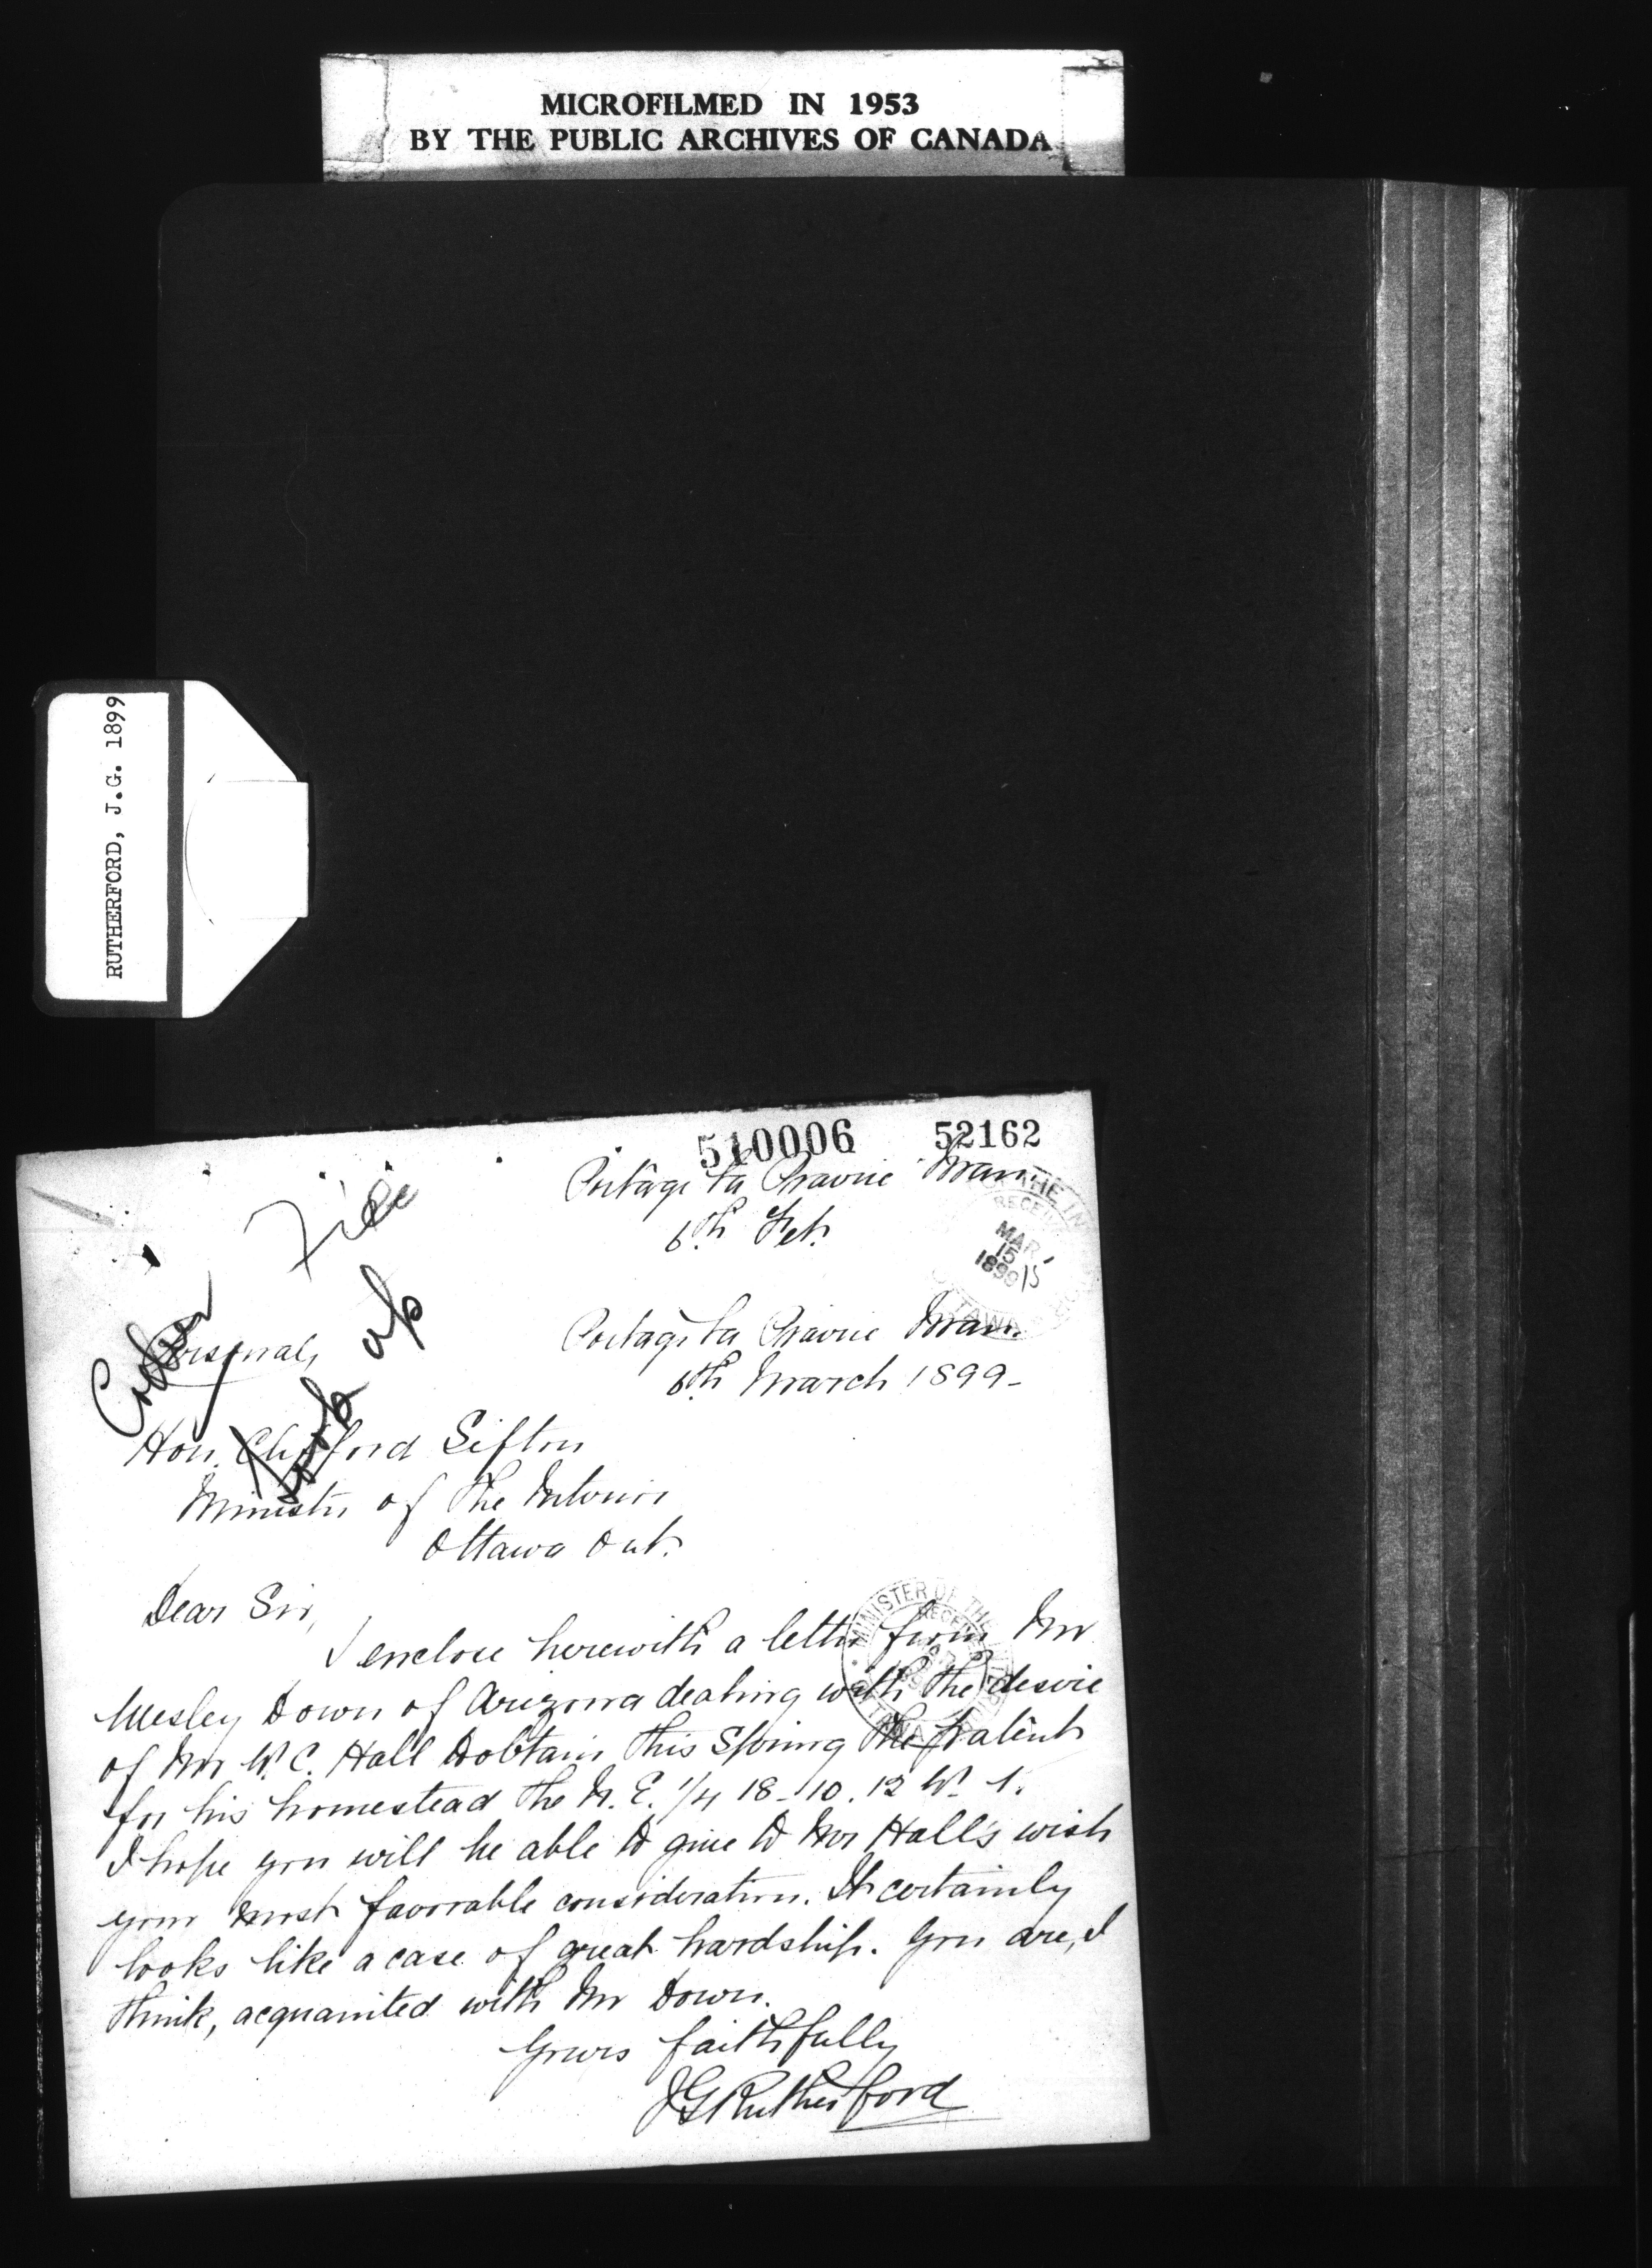 MICROFILMED IN 1953
BY THE PUBLIC ARCHIVES OF CANADA
RUTHERFORD, J.G. 1899
510006 52162
Portage la Prairie Man.
6th Feb.
File
MAR 15 1899
Personal,
Look up
Portage la Prairie Man.
6th March 1899-
Hon. Clifford Sifton
Minister of the Interior
Ottawa Ont.
MINISTER OF THE
Dear Sir,
I enclose herewith a letter from Mr
Wesley Down of Arizona dealing with the desire
of Mr W. C. Hall to obtain this Spring the patent
for his homestead the N. E. 1/4 18-10.12 W. 1.
I hope you will be able to give to Mr Hall's wish
your most favorable consideration. It certainly
looks like a case of great hardship. You are, I
think, acquainted with Mr Down.
Yours faithfully
JG Rutherford